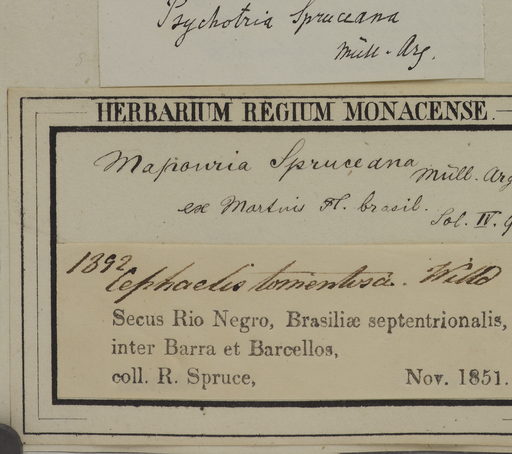 Psychotria Spruceana
Müll. Arg.
HERBARIUM REGIUM MONACENSE.
Mapouria Spruceana Müll. Arg
ex Martius Fl. brasil.
IV.
1892
Cephaelis tomentosa. Willd
Secus Rio Negro, Brasiliæ septentrionalis,
inter Barra et Barcellos,
coll. R. Spruce, Nov. 1851.